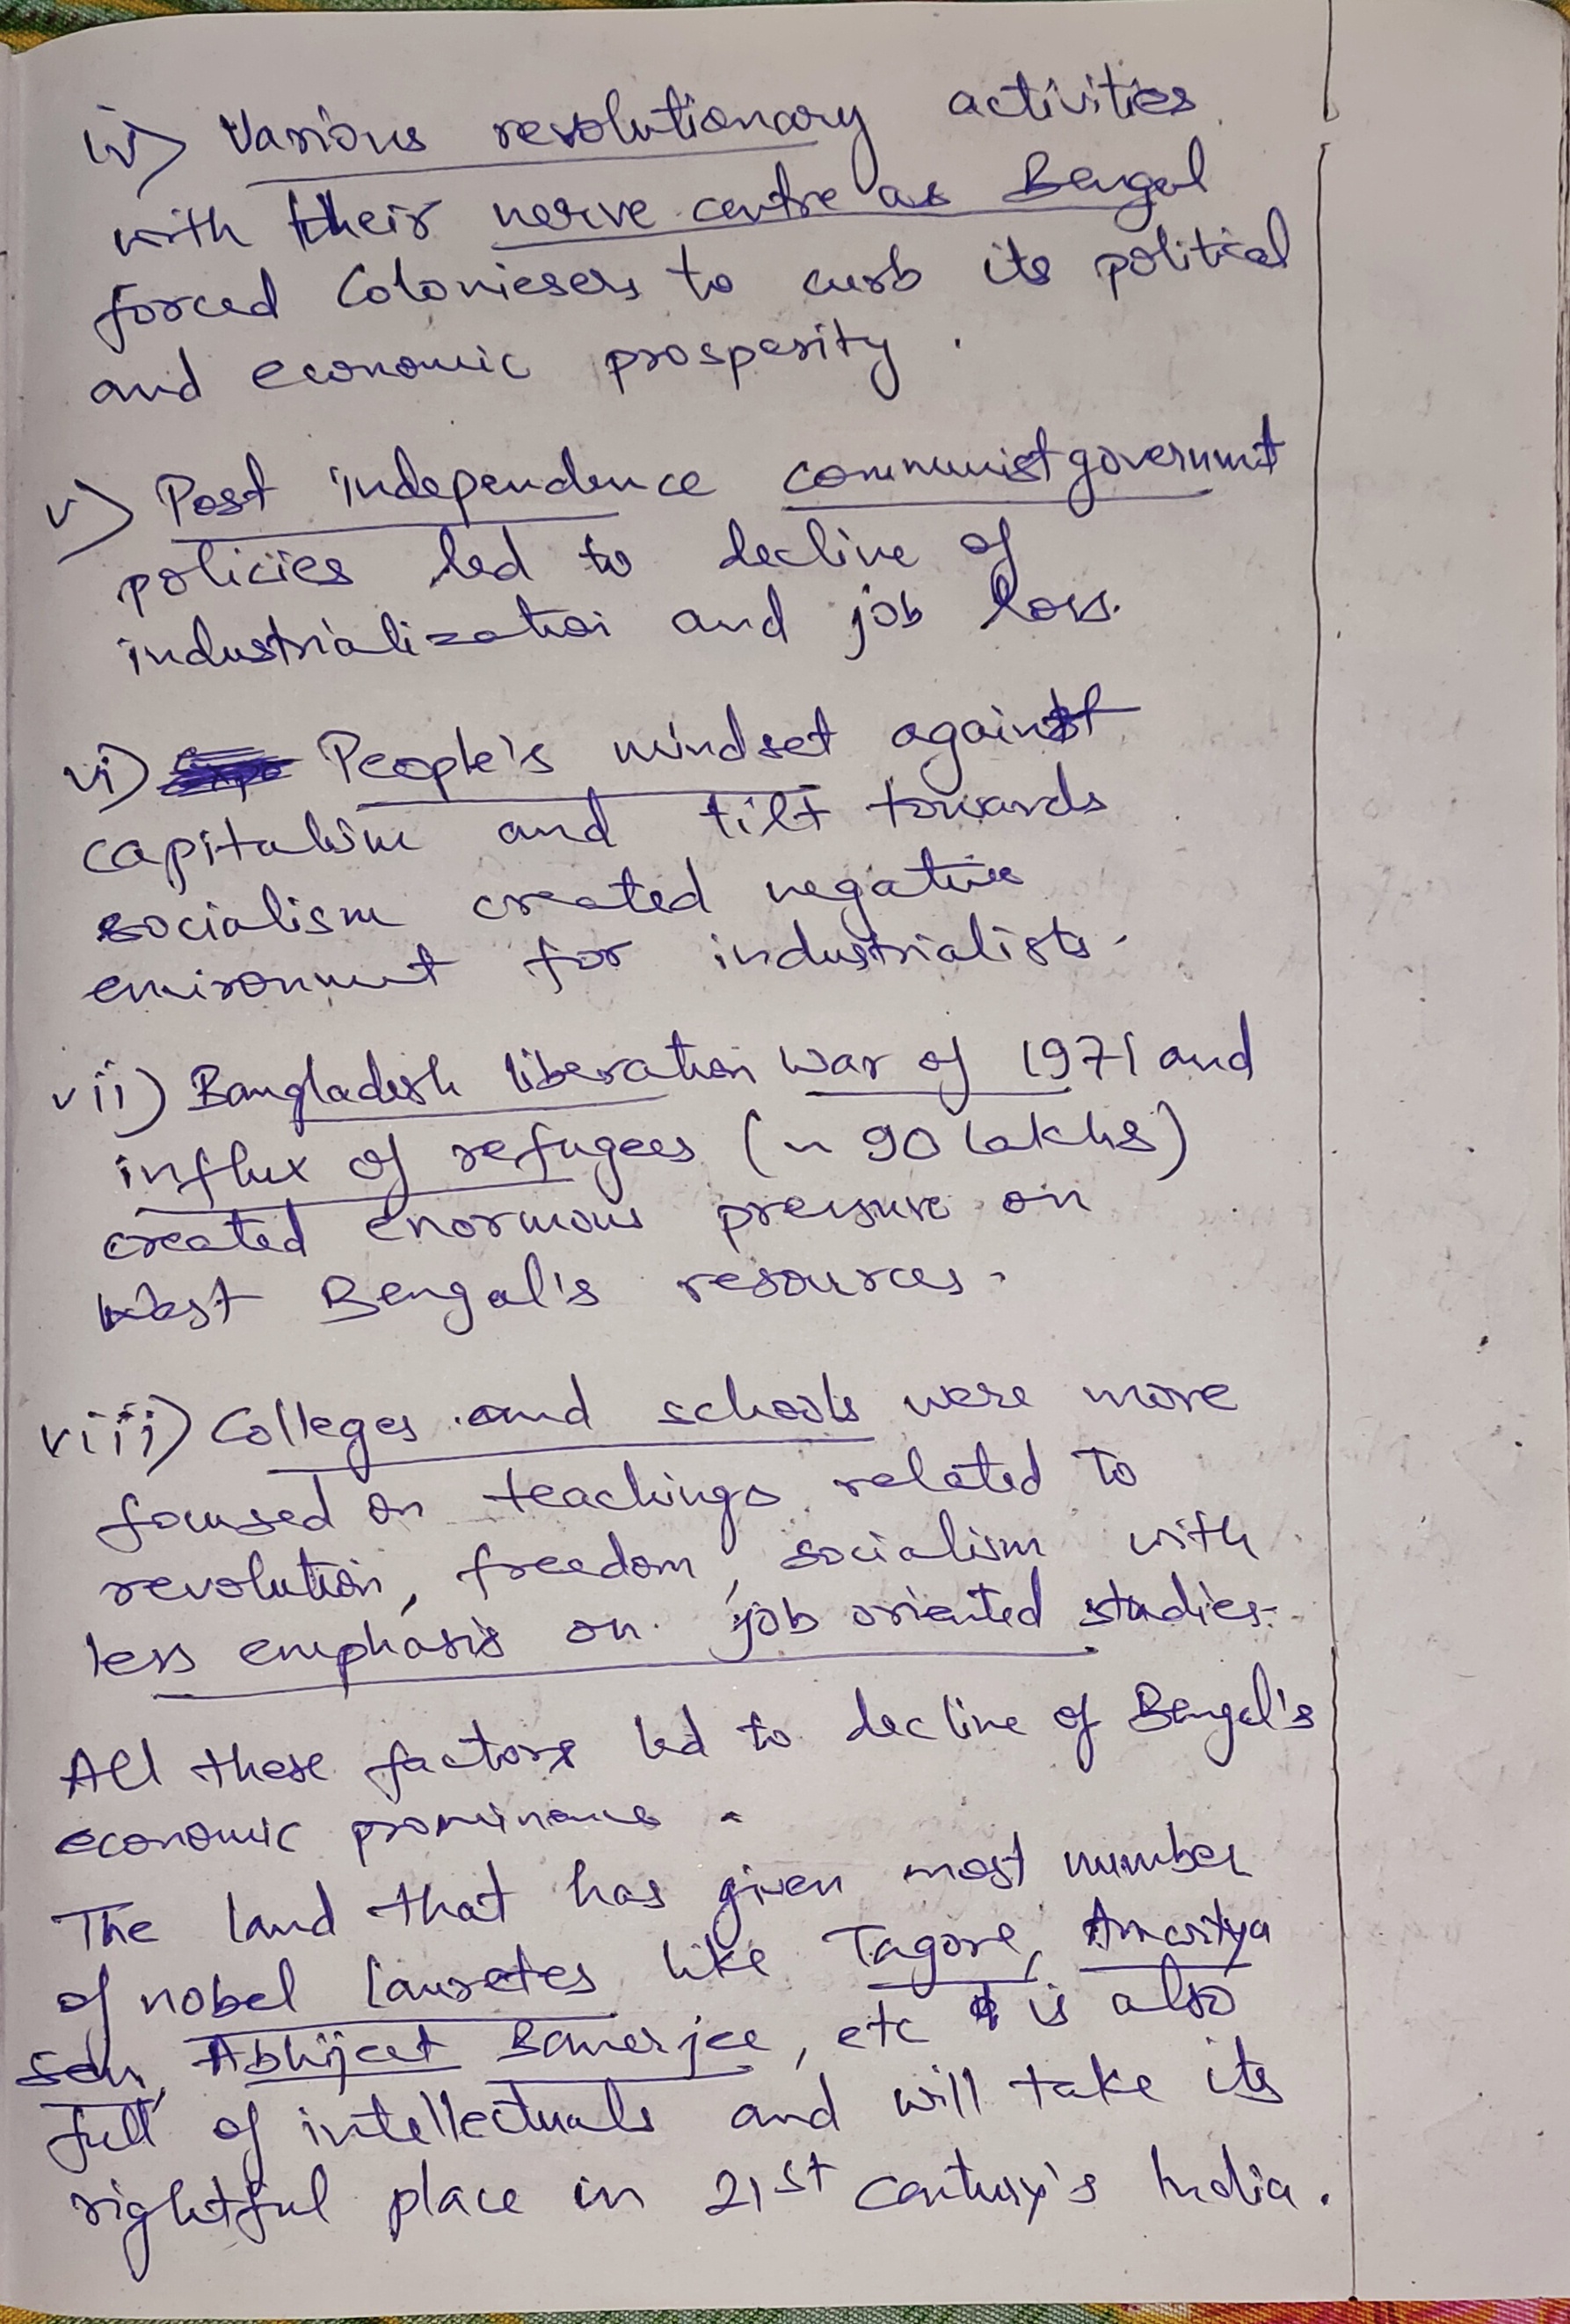 iv) Various revolutionary activities
with their nerve centre as Bengal
forced Coloniesers to curb its political
and economic prosperity.
v) Post independence communist government
policies led to decline of
industrialization and job loss.
vi) People's mindset against
capitalism and tilt towards
socialism created negative
environment for industrialists.
vii) Bangladesh liberation war of 1971 and
influx of refugees (~ 90 lakhs)
created enormous pressure on
West Bengal's resources.
viii) Colleges and schools were more
focused on teachings related to
revolution, freedom, socialism with
less emphasis on job oriented studies.
All these factors led to decline of Bengal's
economic prominence.
The land that has given most number
of nobel lauretes like Tagore, Amartya
Sen, Abhijeet Banerjee, etc is also
full of intellectuals and will take its
rightful place in 21st century's India.